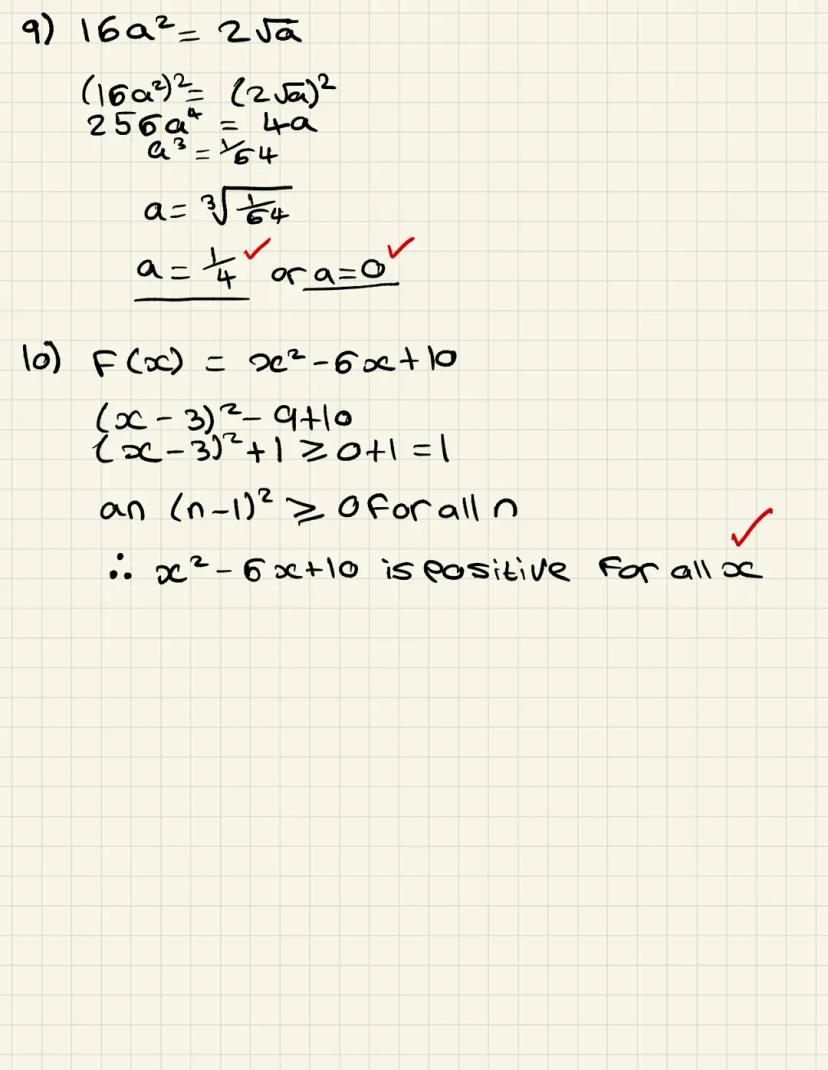 9) 16a² = 2√a
(16a²)² = (2√a)²
256a⁴ = 4a
a³ = 1/64
a = ³√1/64
a = 1/4 ✓ or a=0 ✓
10) F(x) = x² - 6x + 10
(x - 3)² - 9+10
(x - 3)² + 1 ≥ 0+1 = 1
an (n-1)² ≥ 0 For all n
∴ x² - 6x+10 is positive For all x ✓